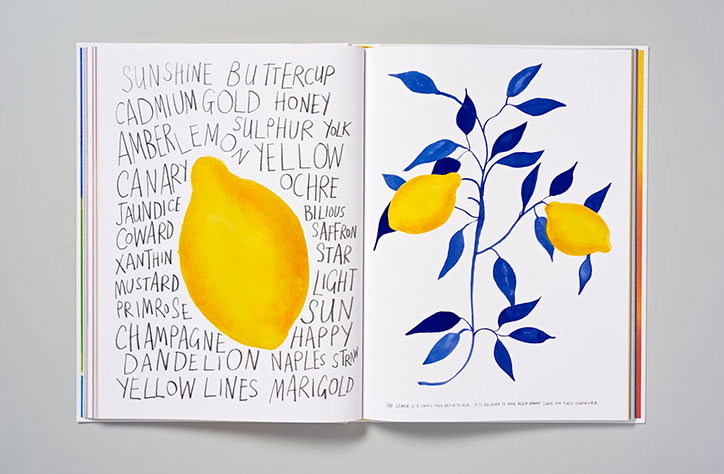 SUNSHINE BUTTERCUP
CADMIUM GOLD HONEY
SULPHUR YOLK
AMBER LEMON YELLOW
CANARY OCHRE
JAUNDICE BILIOUS
COWARD SAFFRON
XANTHIN STAR
MUSTARD LIGHT
PRIMROSE SUN
CHAMPAGNE HAPPY
DANDELION NAPLES STRAW
YELLOW LINES MARIGOLD
THE LEMON IS A SMALL TREE NATIVE TO ASIA. IT IS BELIEVED TO HAVE BEEN SINCE THE FIRST CENTURY